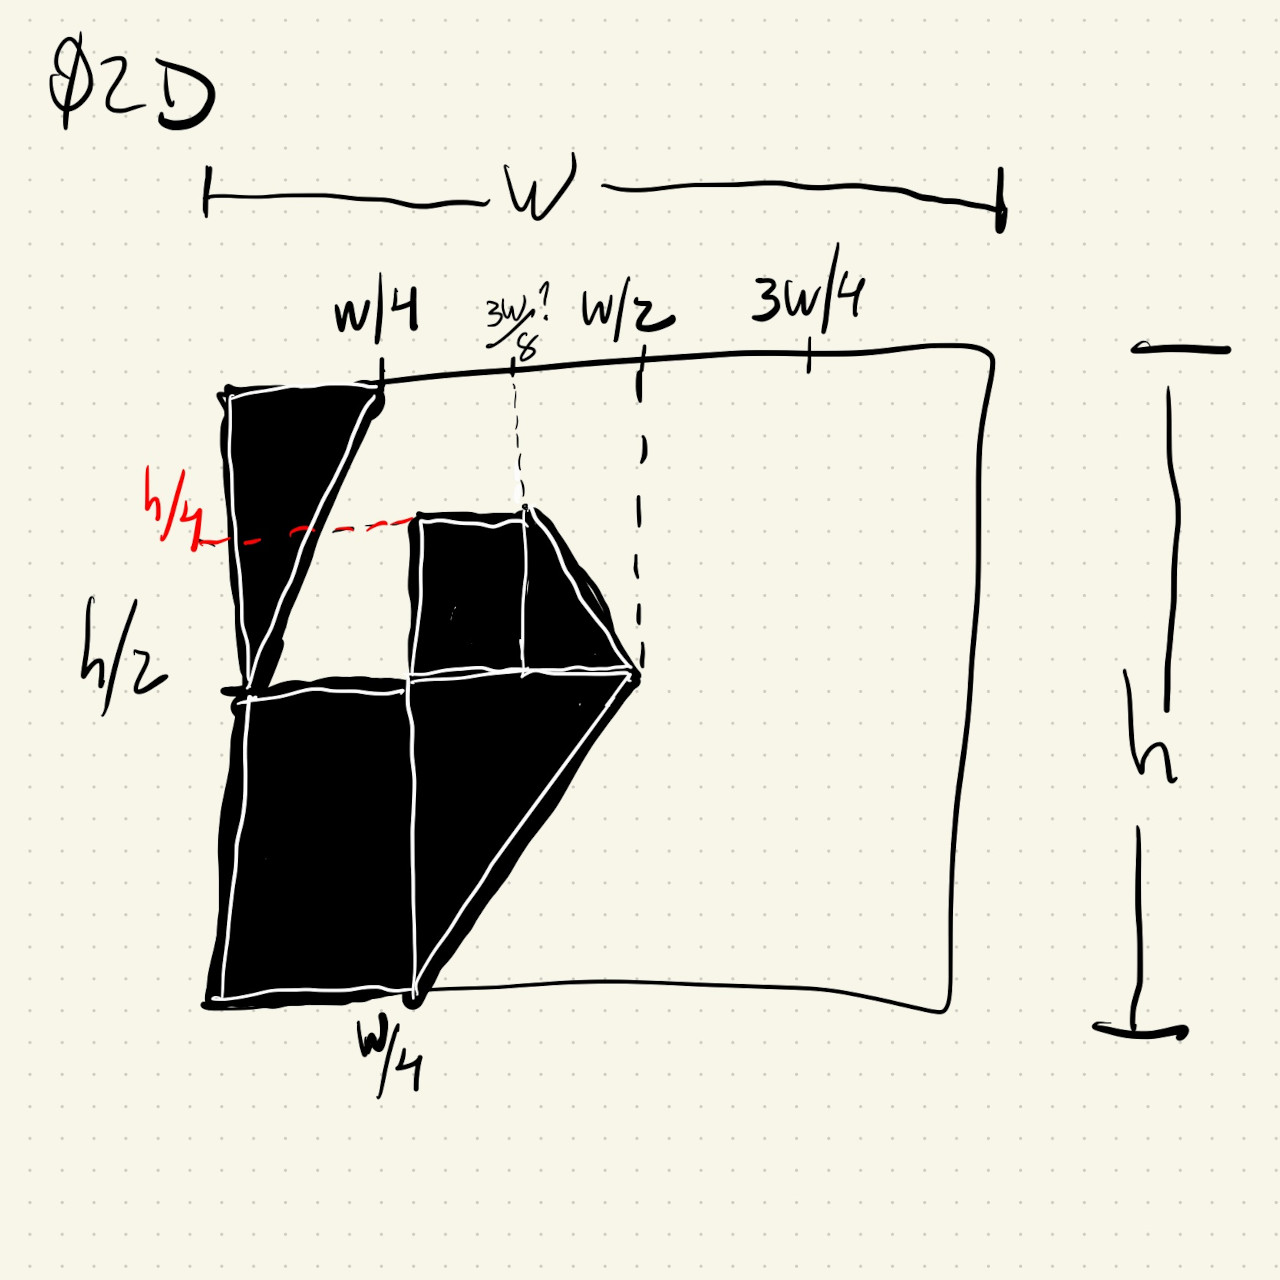 Ø2D
W
w/4 3w/8? w/2 3w/4
h/4
h/2
h
w/4